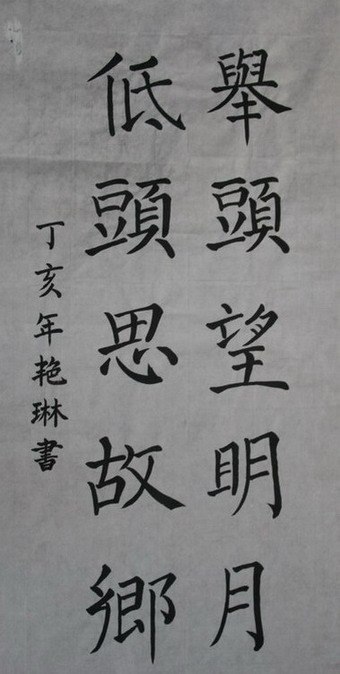 舉頭望明月
低頭思故鄉
丁亥年艳琳書